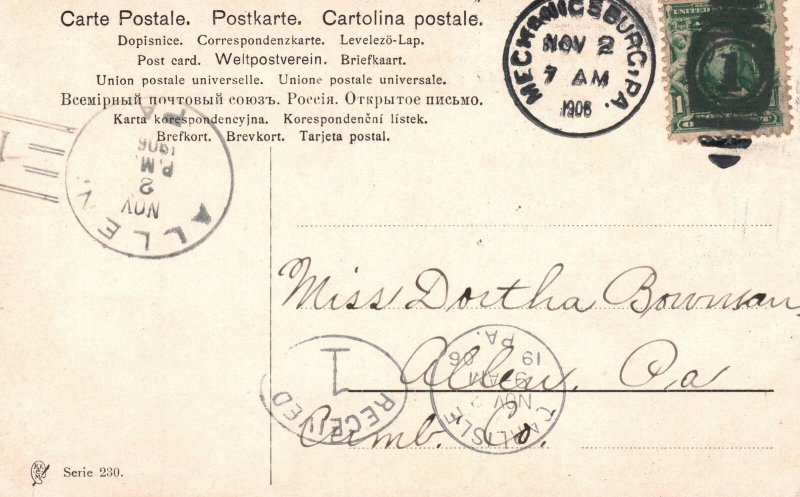 Carte Postale. Postkarte. Cartolina postale.
Dopisnice. Correspondenzkarte. Levelező-Lap.
Post card. Weltpostverein. Briefkaart.
Union postale universelle. Unione postale universale.
Всемірный почтовый союзъ. Россія. Открытое письмо.
Karta korespondencyjna. Korespondenční lístek.
Brefkort. Brevkort. Tarjeta postal.
MECHANICSBURG, PA.
NOV 2
7 AM
1906
1
ALLEN
PA
NOV
2
P.M.
1906
Miss Dortha Bowman
Allen, Pa
Cumb. Co.
RECEIVED
1
CARLISLE
PA.
NOV
AM
19 06
Serie 230.